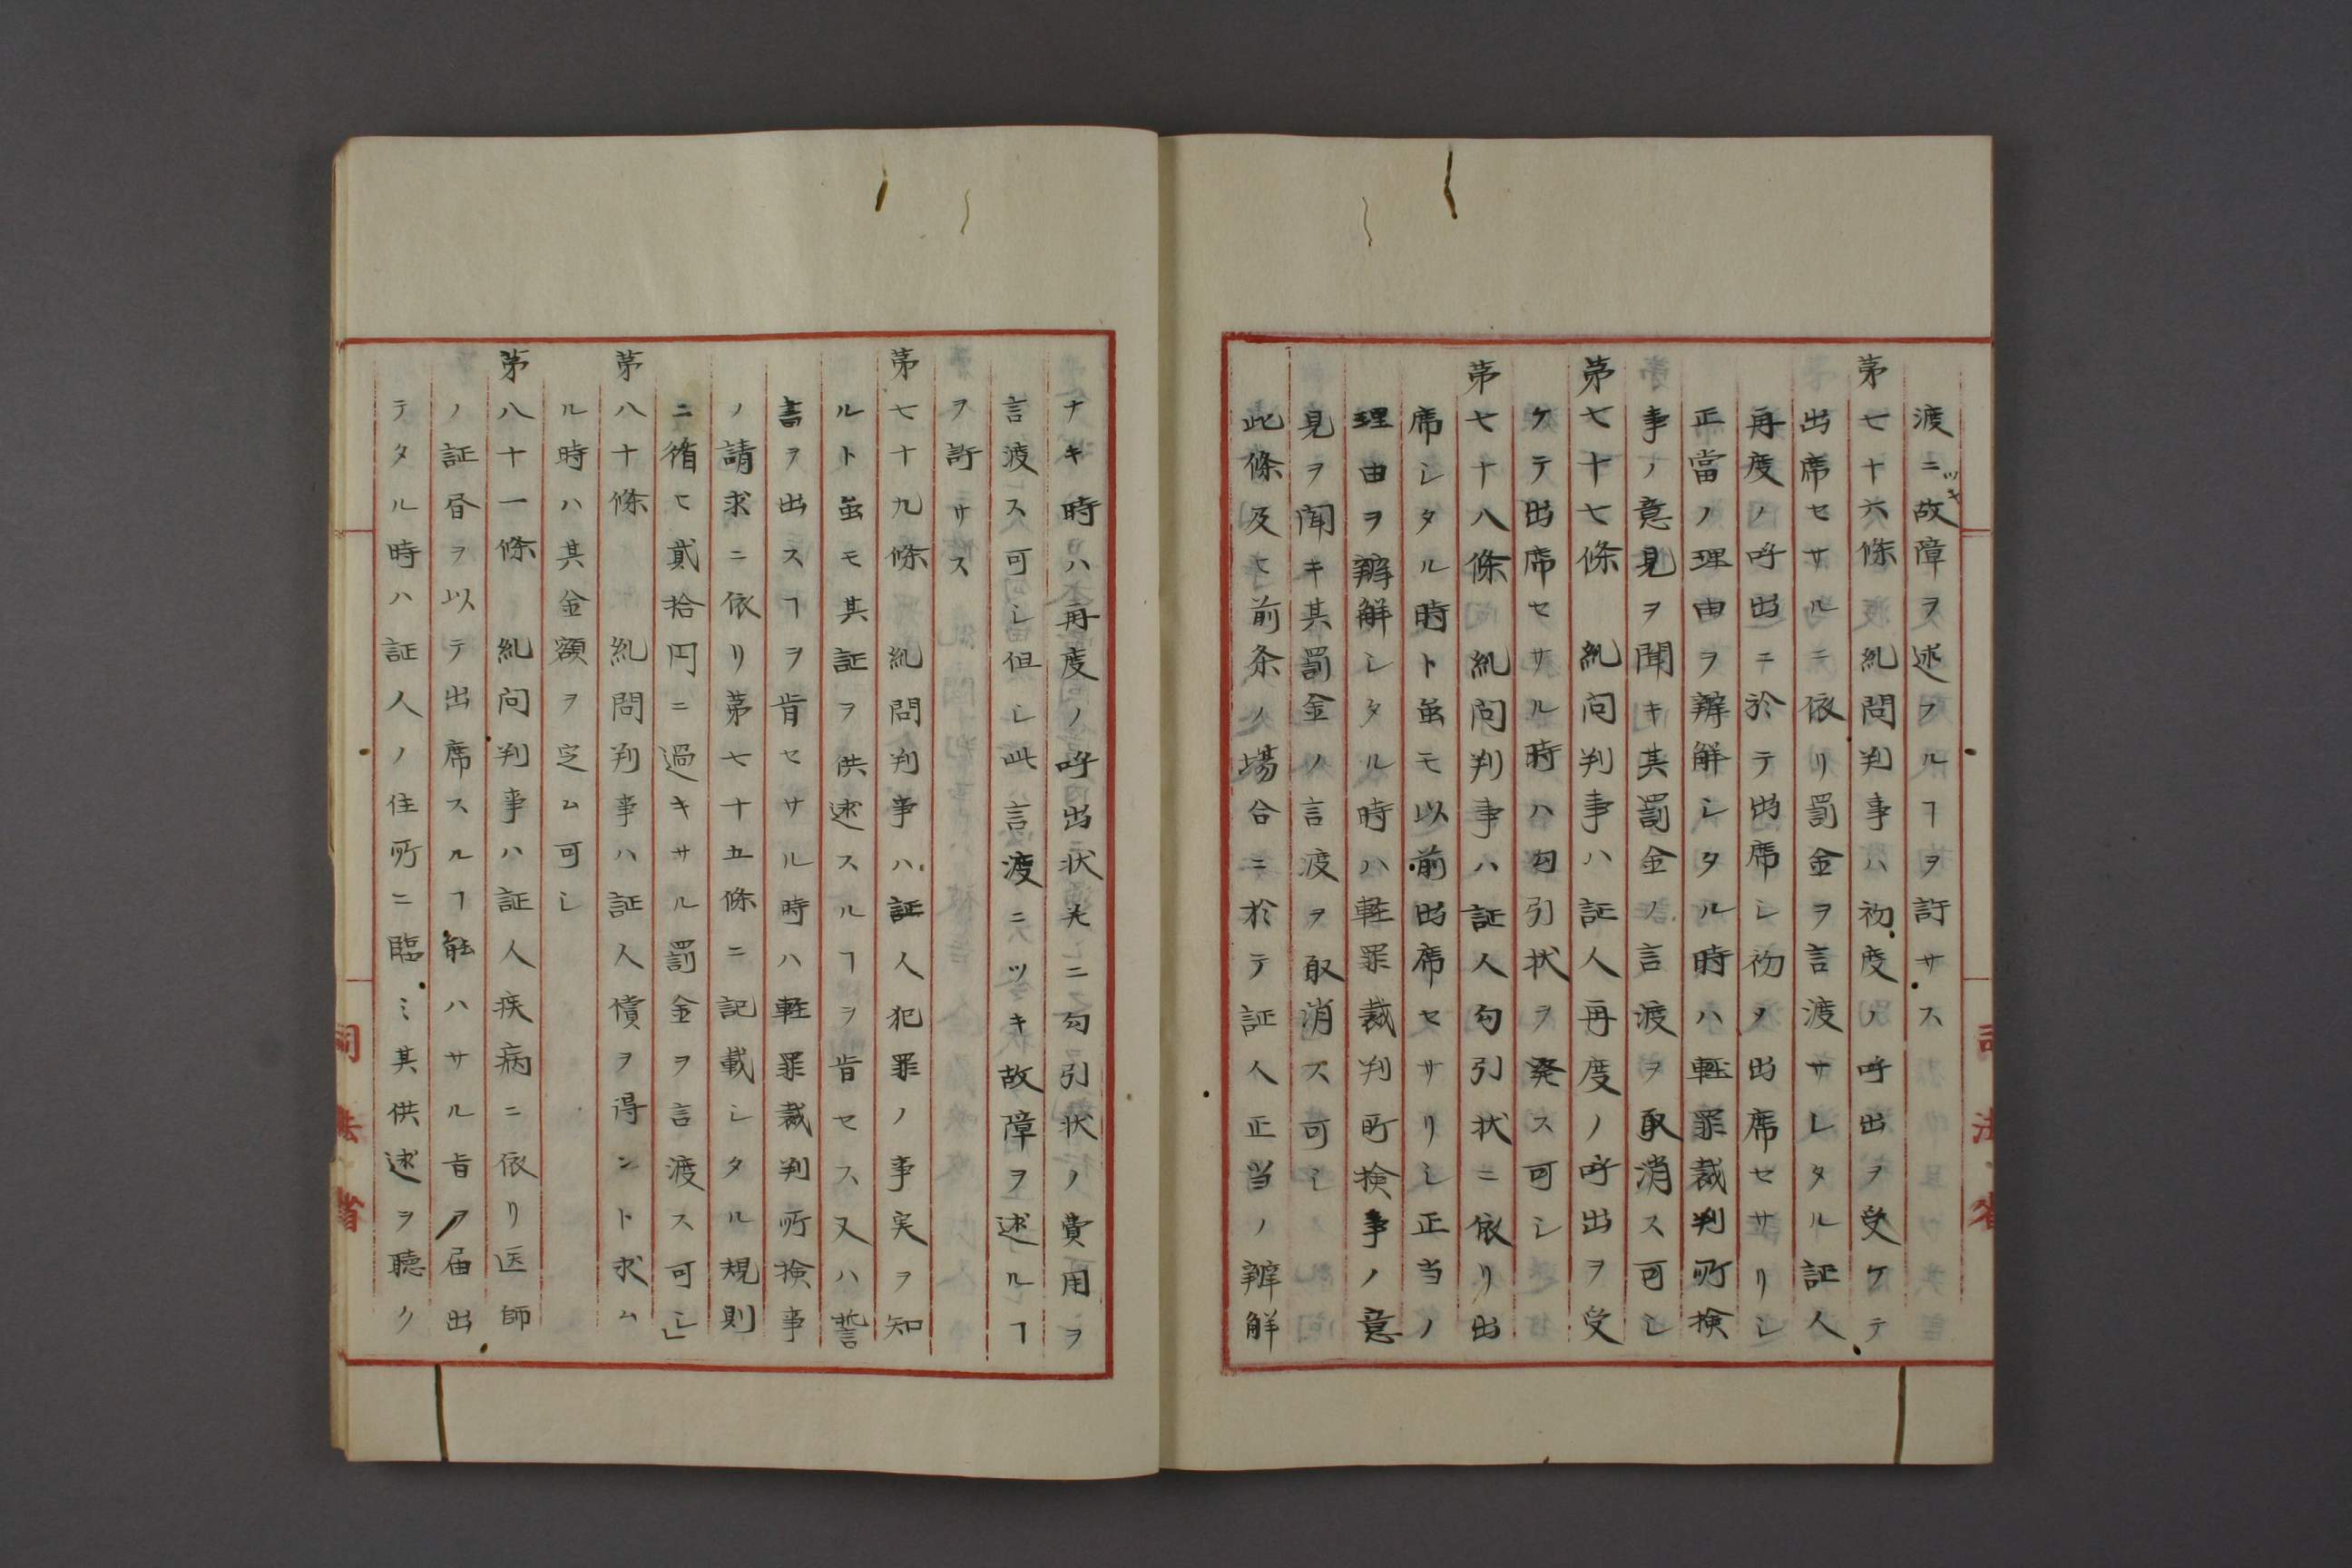 渡ニツキ故障ヲ述フルヿヲ許サス
第七十六條　糺問判事ハ初度ノ呼出ヲ受ケテ
出席セサルニ依リ罰金ヲ言渡サレタル証人
再度ノ呼出ニ於テ出席シ初メ出席セサリシ
正當ノ理由ヲ辨解シタル時ハ軽罪裁判所検
事ノ意見ヲ聞キ其罰金ノ言渡ヲ取消ス可シ
第七十七條　糺問判事ハ証人再度ノ呼出ヲ受
ケテ出席セサル時ハ勾引状ヲ発ス可シ
第七十八條　糺問判事ハ証人勾引状ニ依リ出
席シタル時ト虽モ以前出席セサリシ正当ノ
理由ヲ辨解シタル時ハ軽罪裁判所検事ノ意
見ヲ聞キ其罰金ノ言渡ヲ取消ス可シ
此條及ヒ前条ノ場合ニ於テ証人正当ノ辨解
ナキ時ハ再度ノ呼出状并ニ勾引状ノ費用ヲ
言渡ス可シ但シ此言渡ニツキ故障ヲ述ルヿ
ヲ許サス
第七十九條　糺問判事ハ証人犯罪ノ事実ヲ知
ルト虽モ其証ヲ供述スルヿヲ肯セス又ハ誓
書ヲ出スヿヲ肯セサル時ハ軽罪裁判所検事
ノ請求ニ依リ第七十五條ニ記載シタル規則
ニ循ヒ貳拾円ニ過キサル罰金ヲ言渡ス可シ」
第八十條　糺問判事ハ証人償ヲ得ント求ム
ル時ハ其金額ヲ定ム可シ
第八十一條　糺問判事ハ証人疾病ニ依リ医師
ノ証書ヲ以テ出席スルヿ能ハサル旨ヲ届出
テタル時ハ証人ノ住所ニ臨ミ其供述ヲ聴ク
司法省
司法省